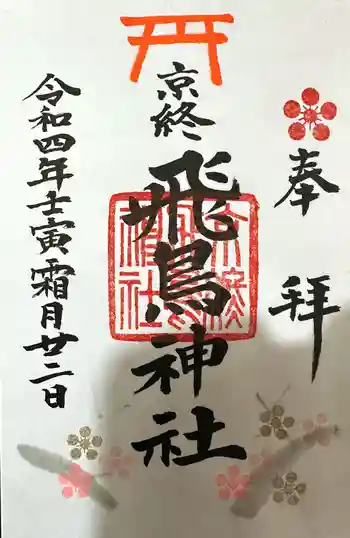 奉拝
京終
飛鳥神社
令和四年壬寅霜月廿二日